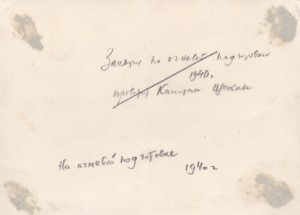 Занятия по огневой подготовке
1940г.
проводит Капитан
На огневой подготовке
1940 г